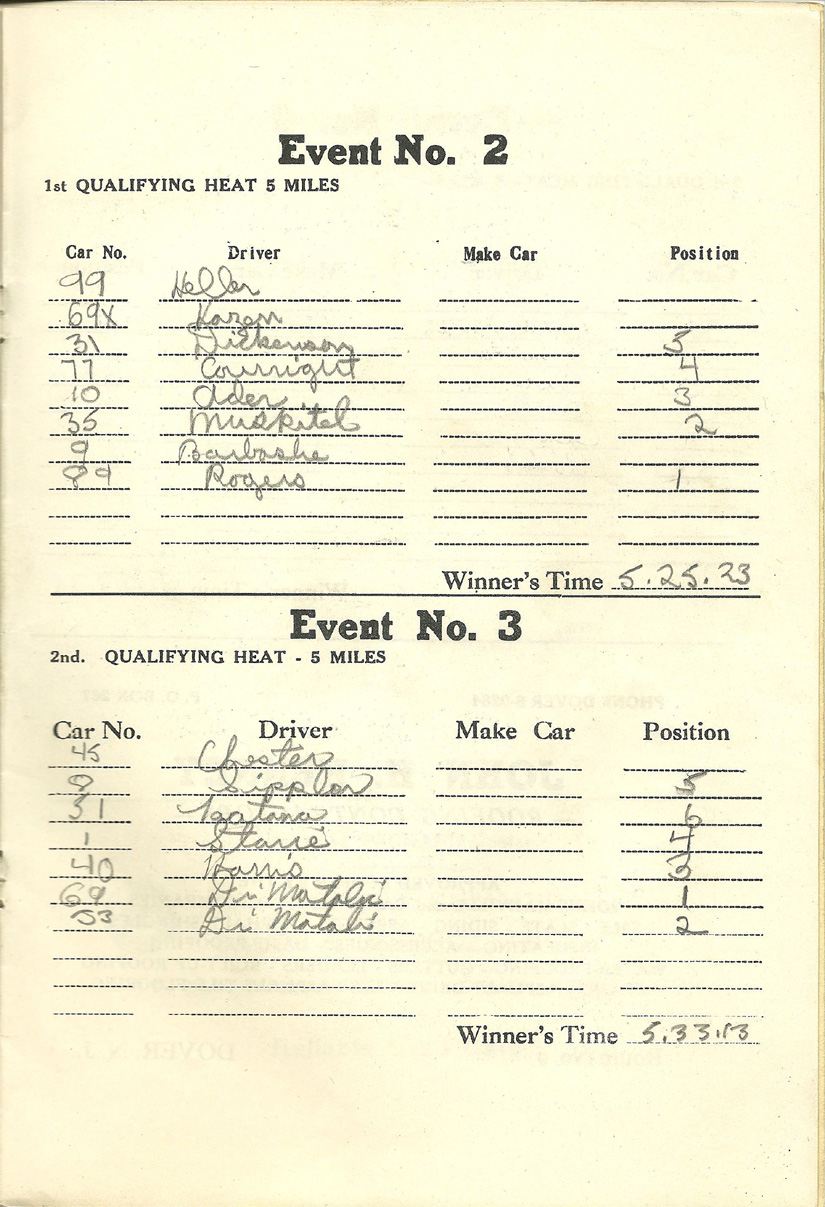 Event No. 2
1st QUALIFYING HEAT 5 MILES
Car No. Driver Make Car Position
99 Heller
69X Kazen
31 Dickenson 5
77 Courwright 4
10 Ader 3
35 Muskitel 2
9 Barbashe
89 Rogers 1
Winner's Time 5.25.23
Event No. 3
2nd. QUALIFYING HEAT - 5 MILES
Car No. Driver Make Car Position
45 Chester
8 Sippler 5
31 6
1 4
40 Harris 3
69 1
53 2
Winner's Time 5.33.13